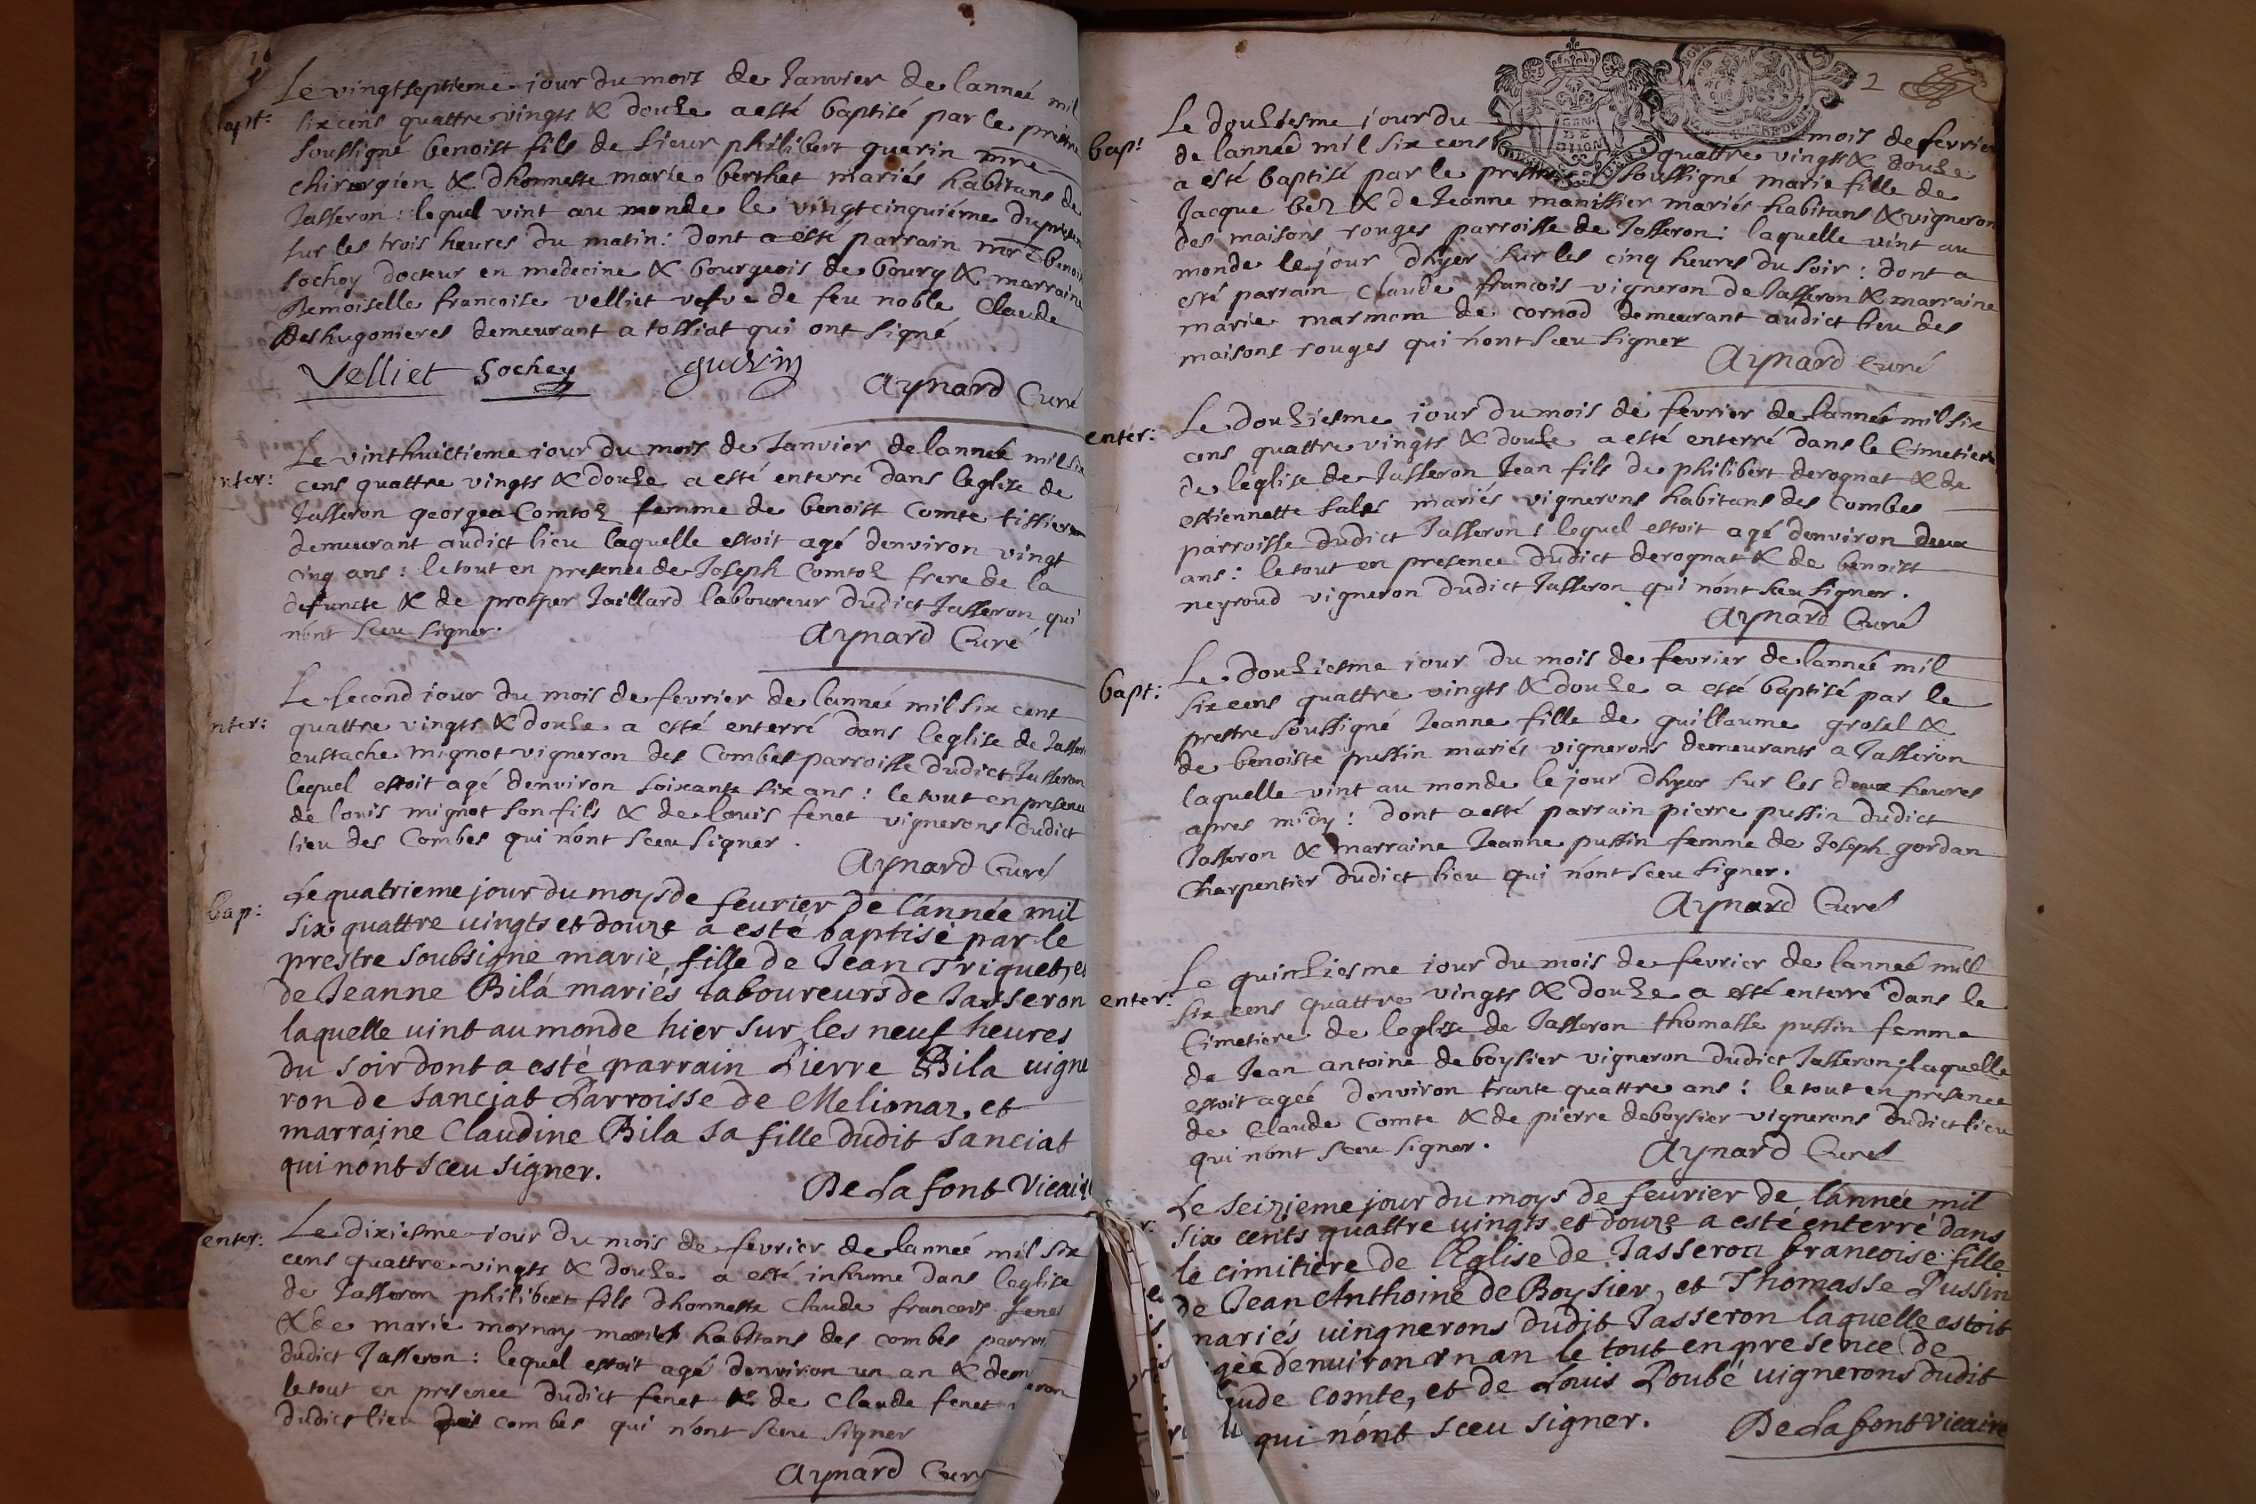 bapt:
Le vingtseptieme iour du mois de Janvier de lanneé mil
six cens quattre vingts & douze a esté baptisé par le prestre
soussigné benoist fils de sieur philibert guerin mre
chirurgien & dhonneste marie berthet mariés habitans de
Jasseron : lequel vint au monde le vingtcinquiéme du presen
sur les trois heures du matin : dont a esté parrain mre benoit
sochey docteur en medecine & bourgeois de bourg & marraine
Demoiselle francoise velliet vefve de feu noble Claude
Deshugonieres demeurant a tossiat qui ont signé
Velliet Sochey guerin
Aynard Curé
nter:
Le vinthuictieme iour du mois de Janvier de lanneé mil six
cens quattre vingts & douze a esté enterré dans leglise de
Jasseron georgea Comtoz femme de benoist Comte tissier
demeurant audict lieu laquelle estoit agé denviron vingt
cinq ans : le tout en presence de Joseph Comtoz frere de la
defuncte & de prosper Jaillard laboureur dudict Jasseron qui
nont sceu signer.
Aynard Curé
nter:
Le second iour du mois de fevrier de lanneé mil six cent
quattre vingts & douze a esté enterré dans leglise de Jasser
eustache mignot vigneron des Combes parroisse dudict Jasseron
lequel estoit agé denviron soixante six ans : le tout en presence
de louis mignot son fils & de louis fenet vignerons dudict
lieu des Combes qui n'ont sceu signer.
Aynard Curé
bap:
Le quatrieme jour du moys de feurier de l'année mil
six quattre uingts et douze a esté baptisé par le
prestre soubsigné marie fille de Jean Triquet, et
de Jeanne Bila mariés laboureurs de Jasseron
laquelle uint au monde hier sur les neuf heures
du soir dont a esté parrain Pierre Bila uigne
ron de sanciat Parroisse de Melionaz, et
marraine Claudine Bila sa fille dudit sanciat
qui nónt sceu signer.
De la font Vicaire
enter:
Le dixiesme iour du mois de fevrier de lanneé mil six
cens quattre vingts & douze a esté inhumé dans leglise
de Jasseron philibert fils dhonneste Claude francois fenet
& de marie mornay mariés habitans des combes parroi
dudict Jasseron : lequel estoit agé denviron un an & demi
le tout en presence dudict fenet & de Claude fenet
dudict lieu des combes qui n'ont sceu signer
Aynard Curé
2
GEN. DE DIJON
bapt
Le douziesme iour du mois de fevrier
de lanneé mil six cens quattre vingts & douze
a esté baptisé par le prestre soussigné marie fille de
Jacque bez & de Jeanne manissier mariés habitans & vigneron
des maisons rouges parroisse de Jasseron : laquelle vint au
monde le jour dhyer sur les cinq heures du soir : dont a
esté parrain Claude francois vigneron de Jasseron & marraine
marie marmom de cornod demeurant audict lieu des
maisons rouges qui n'ont sceu signer
Aynard Curé
enter:
Le douziesme iour du mois de fevrier de lanneé mil six
cens quattre vingts & douze a esté enterré dans le Cimetiere
de leglise de Jasseron Jean fils de philibert derognat & de
estiennette sales mariés vignerons habitans des Combes
parroisse dudict Jasseron : lequel estoit agé denviron deux
ans : le tout en presence dudict derognat & de benoist
neyroud vigneron dudict Jasseron qui n'ont sceu signer.
Aynard Curé
bapt:
Le douziesme iour du mois de fevrier de lanneé mil
six cens quattre vingts & douze a esté baptisé par le
prestre soussigné Jeanne fille de guillaume grosel &
de benoiste pussin mariés vignerons demeurants a Jasseron
laquelle vint au monde le jour dhyer sur les deux heures
apres midy : dont a esté parrain pierre pussin dudict
Jasseron & marraine Jeanne pussin femme de Joseph gordan
Charpentier dudict lieu qui n'ont sceu signer.
Aynard Curé
enter:
Le quinziesme iour du mois de fevrier de lanneé mil
six cens quattre vingts & douze a esté enterré dans le
Cimetiere de leglise de Jasseron thomasse pussin femme
de Jean antoine de boysier vigneron dudict Jasseron : laquelle
estoit ageé denviron trante quattre ans : le tout en presence
de Claude Comte & de pierre deboysier vignerons dudict lieu
qui n'ont sceu signer.
Aynard Curé
Le seizieme jour du moys de feurier de l'année mil
six cents quattre uingts et douze a esté enterré dans
le cimitiere de l'Eglise de Jasseron francoise fille
de Jean Anthoine de Boysier, et Thomasse Pussin
mariés uingnerons dudit Jasseron laquelle estoit
gée denuiron vn an le tout en presence de
ude comte, et de Louis Poubé uignerons dudit
qui n'ónt sceu signer.
De la font vicaire